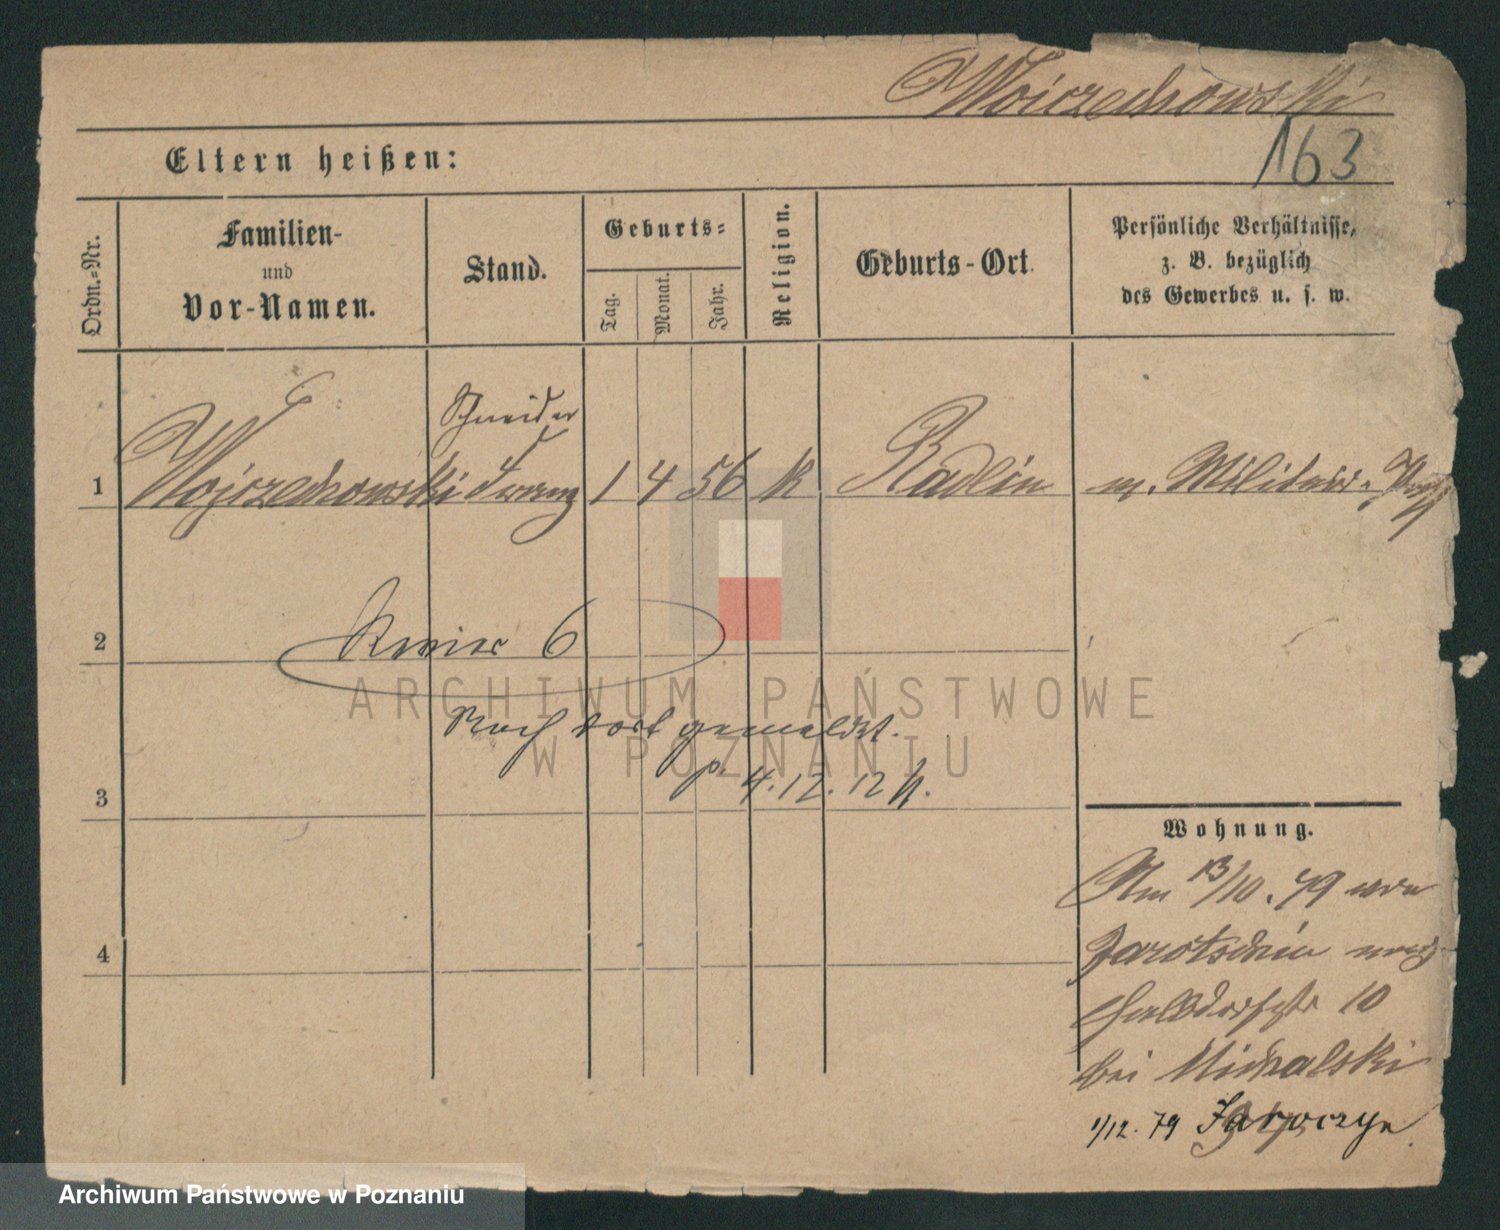 Woiczechowski
163
Eltern heißen:
Ordn.-Nr.
Familien-
und
Vor-Namen.
Stand.
Geburts-
Tag.
Monat.
Jahr.
Religion.
Geburts-Ort.
Persönliche Verhältnisse,
z. B. bezüglich
des Gewerbes u. s. w.
Schneider
1 Wojczechowski Franz 1 4 56 K Radlin m. Militair-
2
Revier 6
ARCHIWUM PAŃSTWOWE
Noch dort gemeldet.
W POZNANIU
P. 4.12.12
3
Wohnung.
Am 13/10. 79 von
Jarotschin nach
Halbdorfstr 10
bei Michalski
4
1/12. 79 Jaroczyn
Archiwum Państwowe w Poznaniu